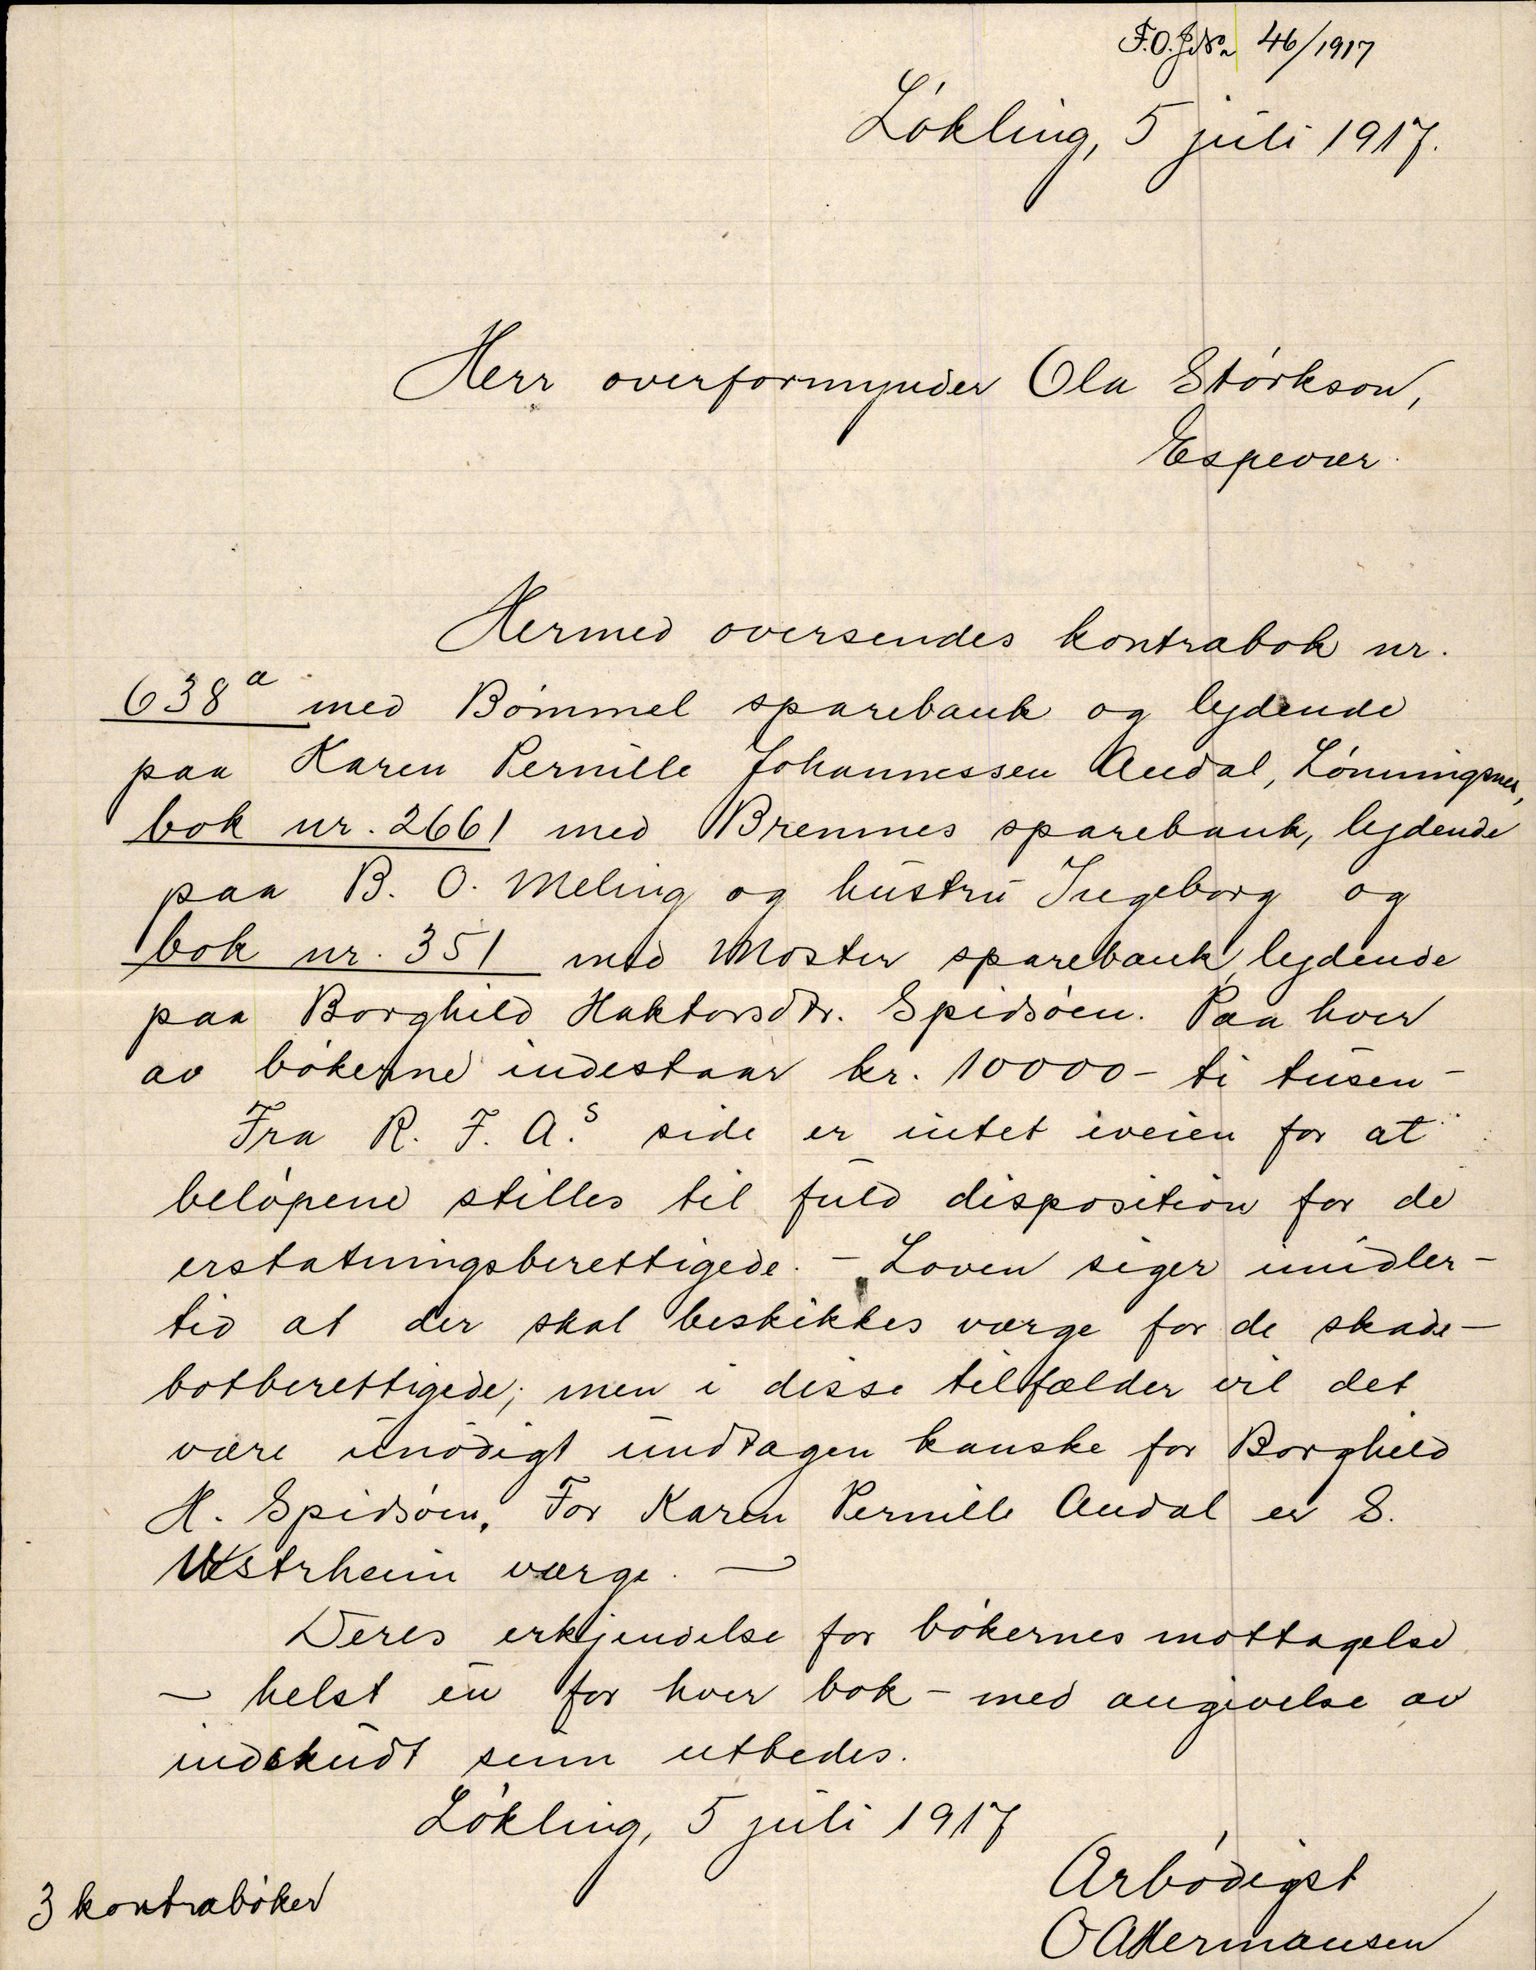 F.O.J.No. 46/1917
Løkling, 5 juli 1917.
Herr overformynder Ola Størkson,
Espevær.
Hermed oversendes kontrabok nr.
638a med Bømmel sparebank og lydende
paa Karen Pernille Johannessen Andal, Lønningsnes,
bok nr. 2661 med Bremnes sparebank, lydende
paa B. O. Meling og hustru Ingeborg og
bok nr. 351 med Moster sparebank lydende
paa Borghild Haktorsdtr. Spidsøen. Paa hver
av bøkerne indestaar kr. 10000 - ti tusen -
Fra R. F. A.s side er intet iveien for at
beløpene stilles til fuld disposition for de
erstatningsberettigede. - Loven siger imidler-
tid at der skal beskikkes værge for de skade-
botberettigede; men i disse tilfælder vil det
være unødigt undtagen kanske for Borghild
H. Spidsøen. For Karen Pernille Andal er S.
Westrheim værge. -
Deres erkjendelse for bøkernes mottagelse
- helst en for hver bok - med angivelse av
indskudt sum utbedes.
Løkling, 5 juli 1917
Ærbødigst
O A Hermansen
3 kontrabøker